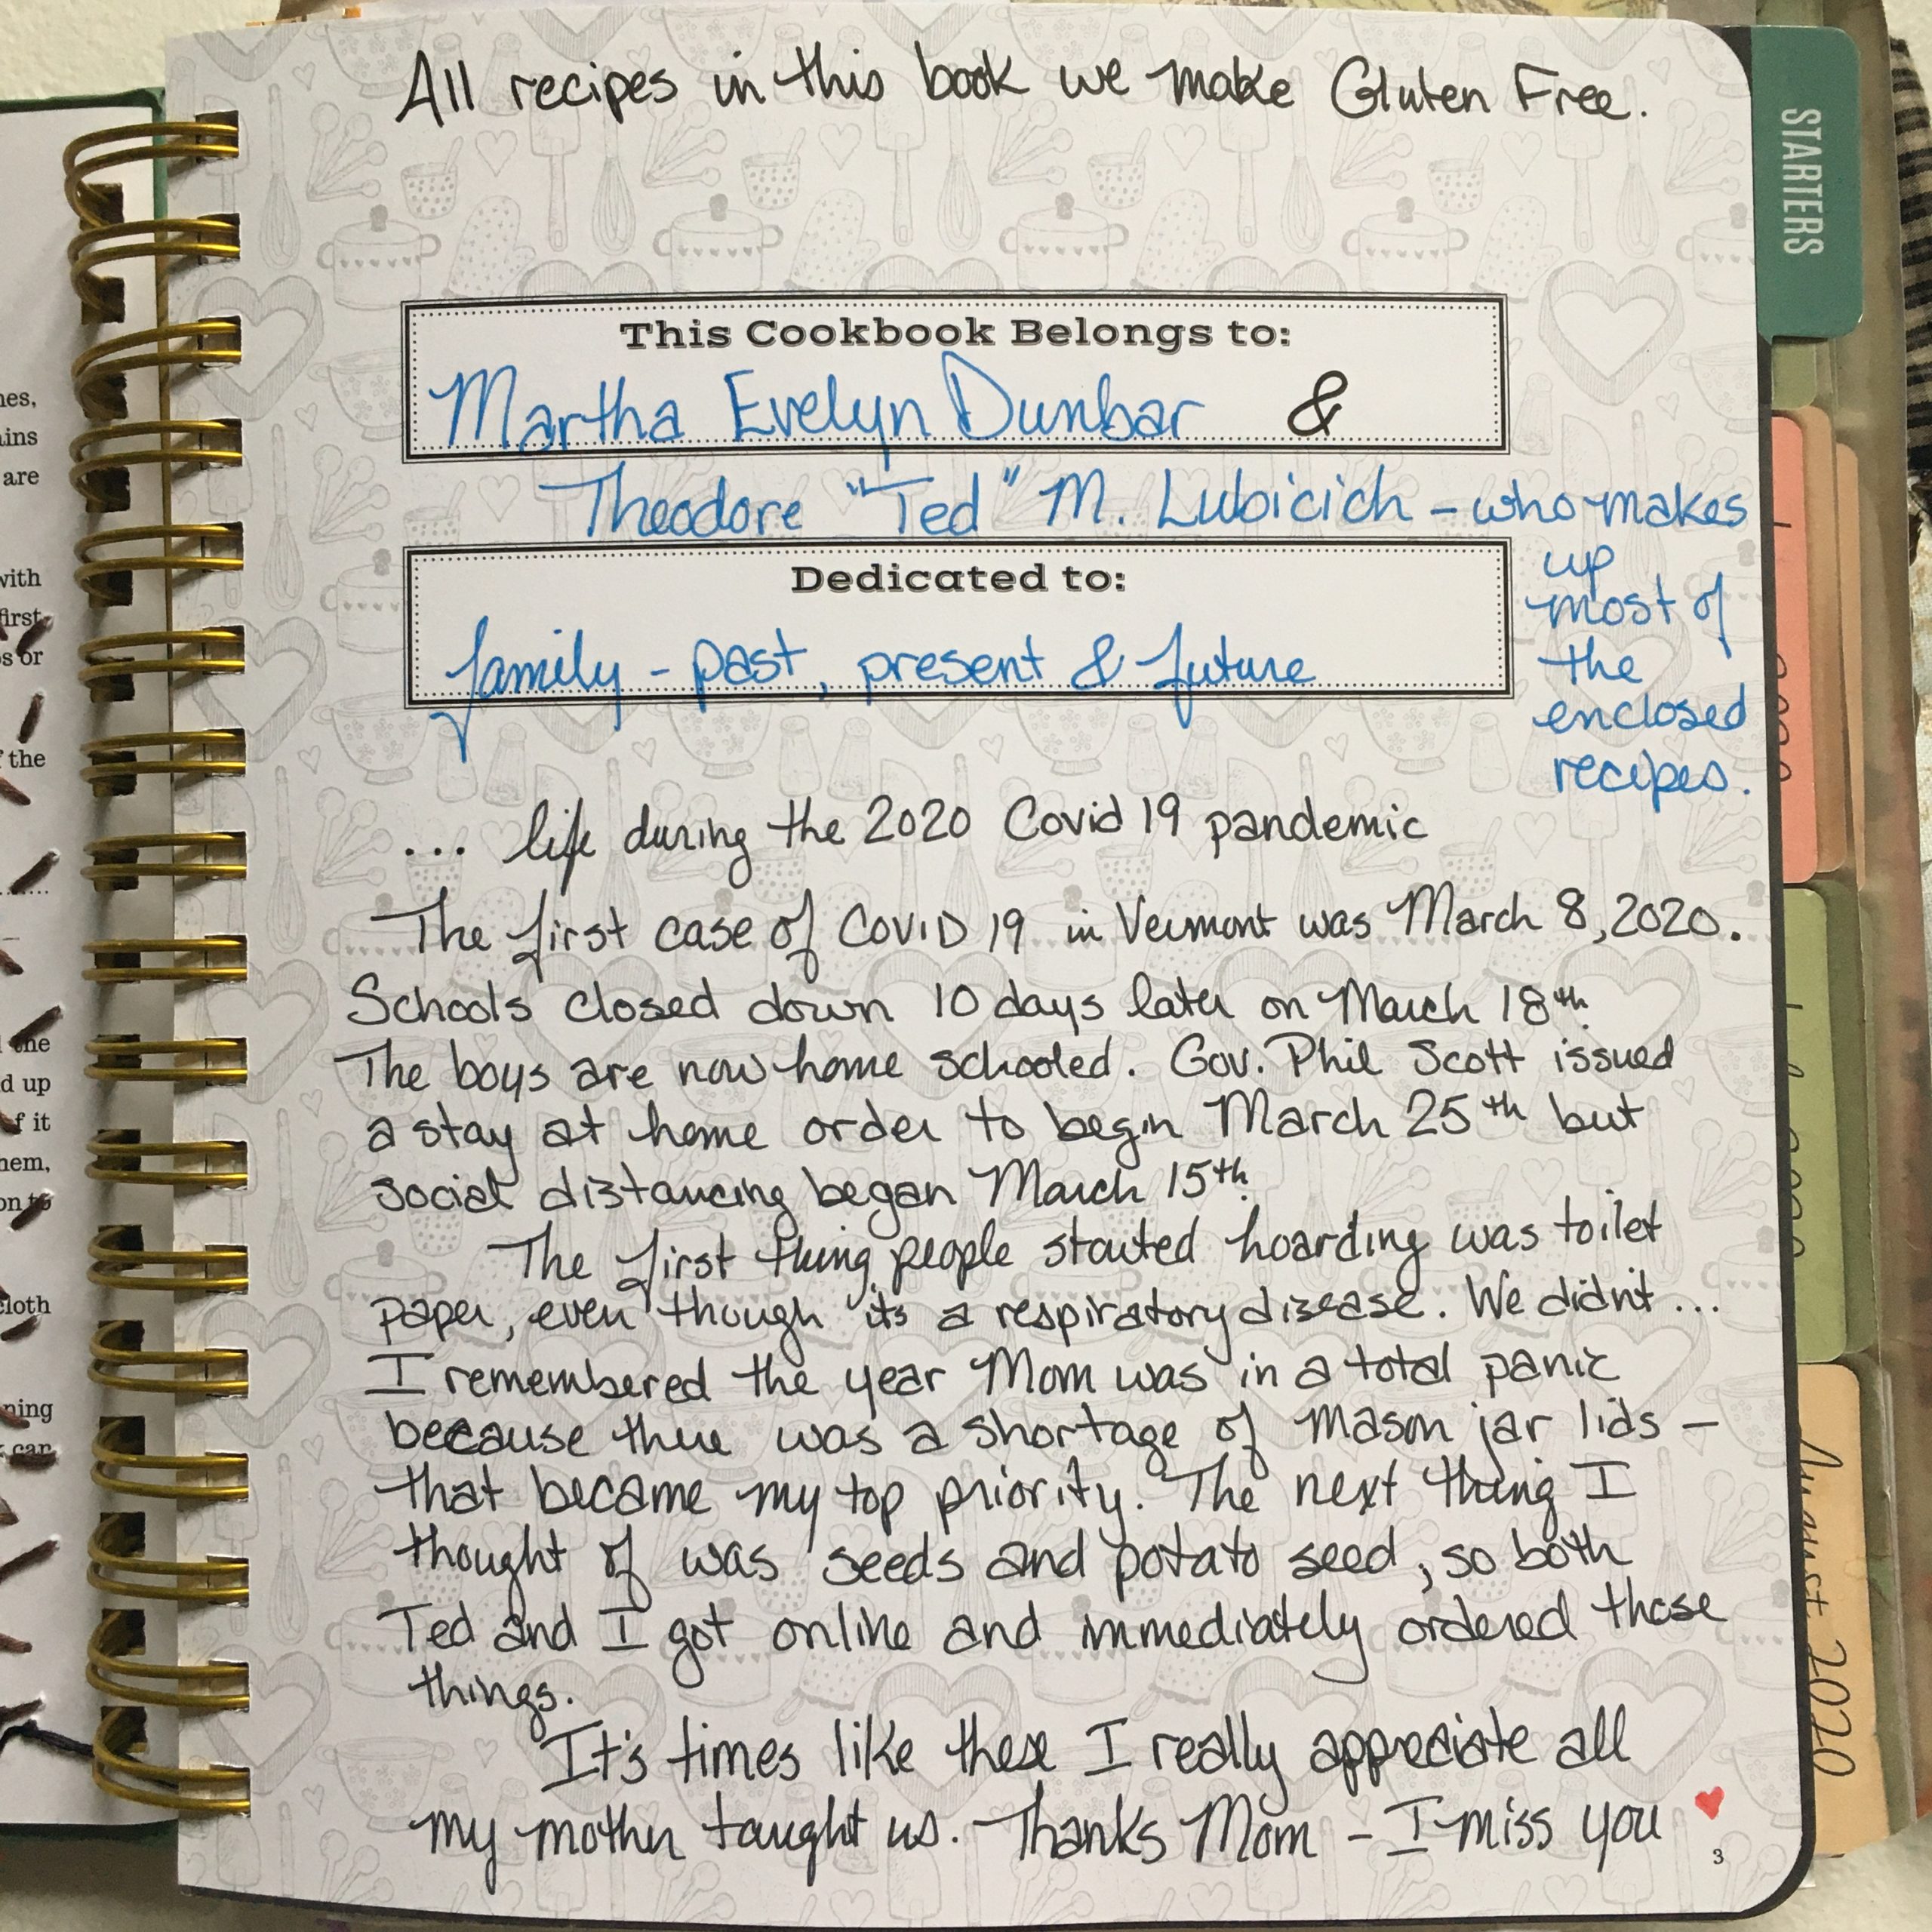 All recipes in this book we make Gluten Free.
This Cookbook Belongs to:
Martha Evelyn Dunbar &
Theodore "Ted" M. Lubicich - who makes
up
most of
the
enclosed
recipes.
Dedicated to:
family - past, present & future
... life during the 2020 Covid 19 pandemic
The first case of COVID 19 in Vermont was March 8, 2020.
Schools closed down 10 days later on March 18th.
The boys are now home schooled. Gov. Phil Scott issued
a stay at home order to begin March 25th but
social distancing began March 15th.
The first thing people started hoarding was toilet
paper, even though its a respiratory disease. We didn't ...
I remembered the year Mom was in a total panic
because there was a shortage of Mason jar lids -
that became my top priority. The next thing I
thought of was seeds and potato seed, so both
Ted and I got online and immediately ordered those
things.
It's times like these I really appreciate all
my mother taught us. Thanks Mom - I miss you
3
STARTERS
August 2020
ains
are
with
first
s or
the
the
d up
f it
hem,
on to
cloth
ning
can